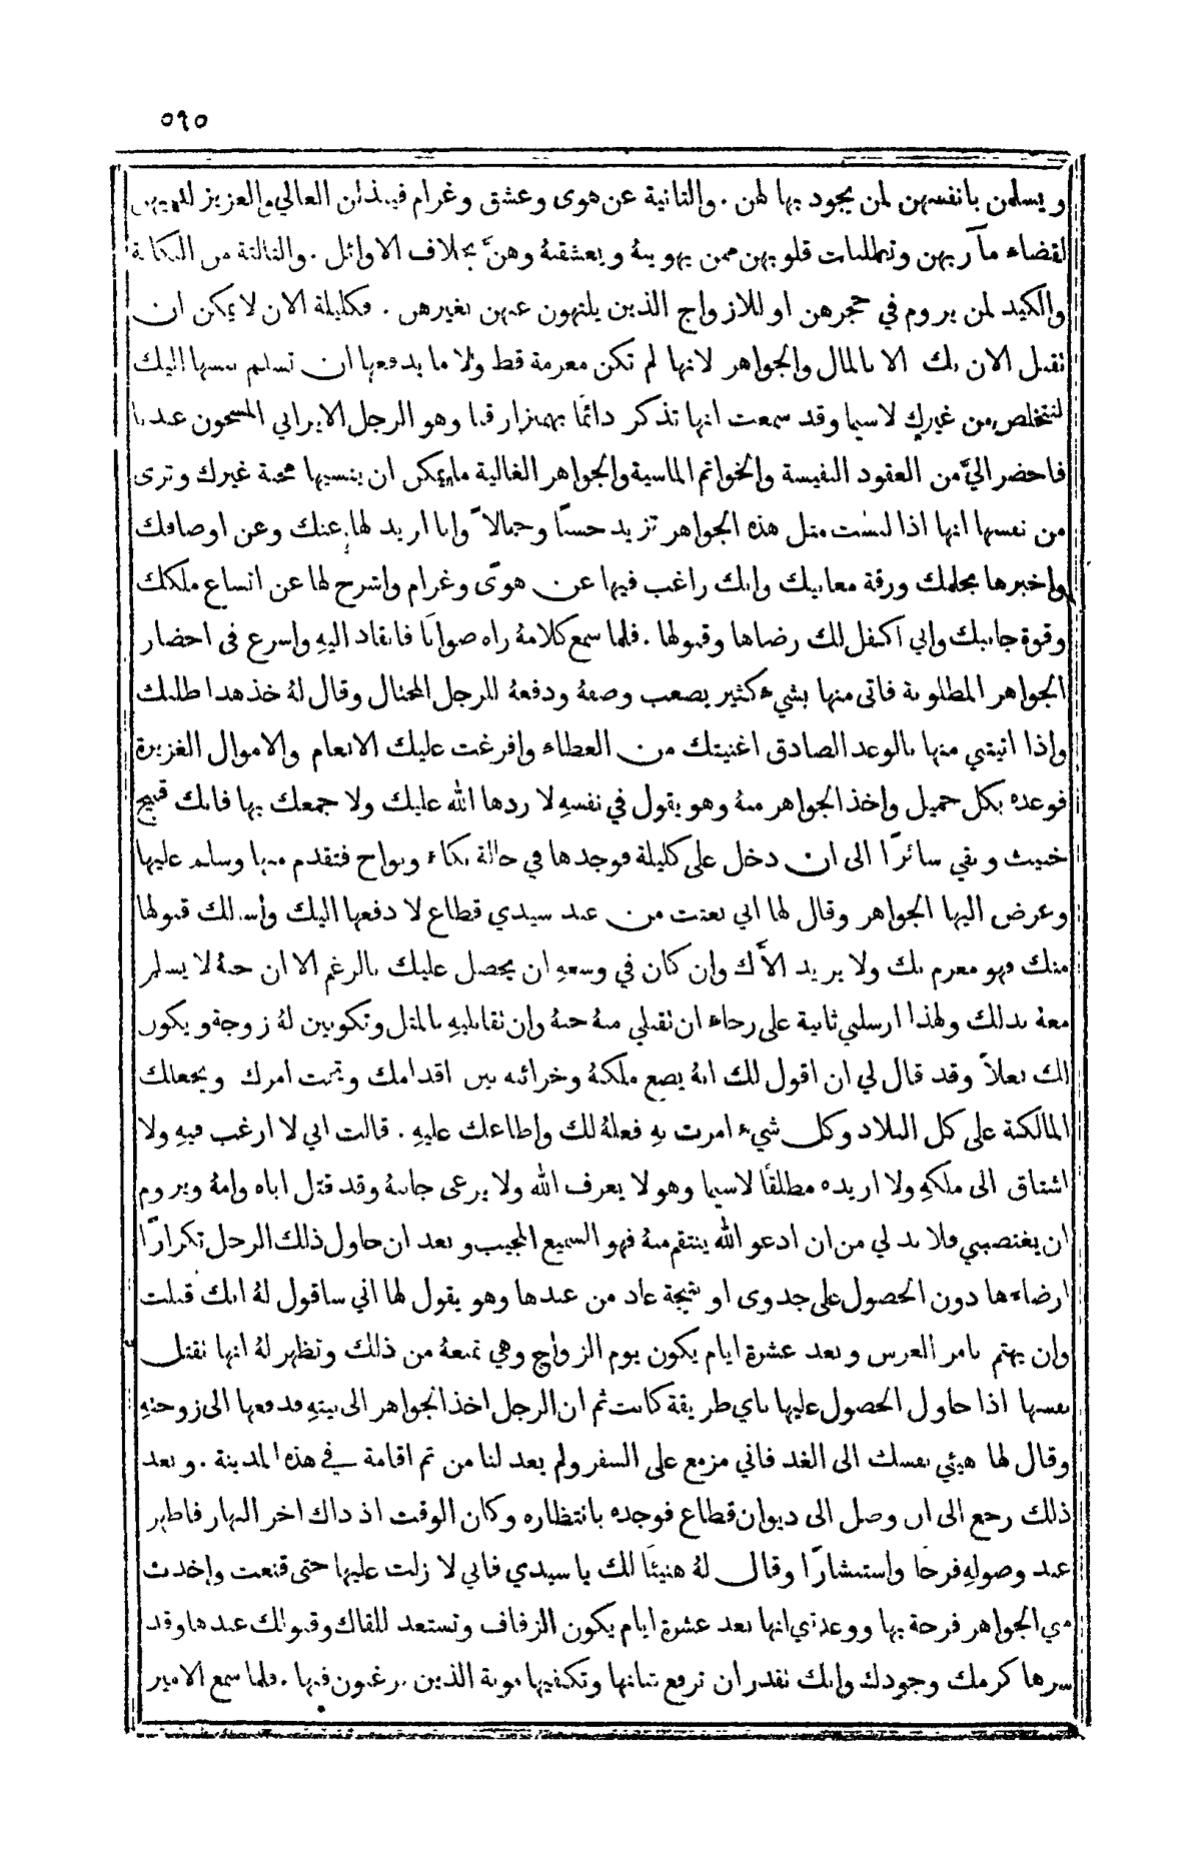 ٥٩٥
ويسلمن بانفسهن لمن يجود بها لهن . والثانية عن هوى وعشق وغرام فيبذلن العالي والعزيز للمهجهن
لقضاء مآربهن وتطلبات قلوبهن ممن يهوينهُ ويعشقنهُ وهنَّ بخلاف الاوائل . والثالثة من النكاية
والكيد لمن يروم في حجرهن او للازواج الذين يلتهون عنهن بغيرهن . فكليلة الان لا يمكن ان
تقبل الان بك الا بالمال والجواهر لانها لم تكن مغرمة قط ولا ما يدفعها ان تسلم نفسها اليك
لتتخلص من غيرك لاسيما وقد سمعت انها تذكر دائمًا بهمنزار قبا وهو الرجل الايراني المسجون عندنا
فاحضر اليَّ من العقود النفيسة والخواتم الماسية والجواهر الغالية ما يمكن ان ينسيها محبة غيرك وترى
من نفسها انها اذا لبست مثل هذه الجواهر تزيد حسنًا وجمالاً وانا اريد لها عنك وعن اوصافك
واخبرها بحلمك ورقة معانيك وانك راغب فيها عن هوًى وغرام واشرح لها عن اتساع ملكك
وقوة جانبك واني اكفل لك رضاها وقبولها . فلما سمع كلامهُ راه صوابًا فانقاد اليهِ واسرع في احضار
الجواهر المطلوبة فاتى منها بشيء كثير يصعب وصفهُ ودفعهُ للرجل المحتال وقال لهُ خذ هذا طلبك
واذا اتيتني منها بالوعد الصادق اغنيتك من العطاء وافرغت عليك الانعام والاموال الغزيرة
فوعده بكل جميل واخذ الجواهر منهُ وهو يقول في نفسهِ لا ردها الله عليك ولا جمعك بها فانك قبيح
خبيث وبقي سائرًا الى ان دخل على كليلة فوجدها في حالة بكاء ونواح فتقدم منها وسلم عليها
وعرض اليها الجواهر وقال لها اني بعثت من عند سيدي قطاع لا دفعها اليك واسالك قبولها
منك فهو مغرم بك ولا يريد الاَّك وان كان في وسعهِ ان يحصل عليك بالرغم الا ان حبهُ لا يسلم
معهُ بذلك ولهذا ارسلني ثانية على رجاء ان تقبلي منهُ حبهُ وان تقابليهِ بالمثل وتكونين لهُ زوجة ويكون
لك بعلاً وقد قال لي ان اقول لك انهُ يضع ملكهُ وخزائنه بين اقدامك وتحت امرك ويجعلك
المالكة على كل البلاد وكل شيء امرت بهِ فعلهُ لك واطاعك عليهِ . قالت اني لا ارغب فيهِ ولا
اشتاق الى ملكهِ ولا اريده مطلقًا لاسيما وهو لا يعرف الله ولا يرعى جانبهُ وقد قتل اباه وامهُ ويروم
ان يغتصبني فلا بد لي من ان ادعو الله ينتقم منهُ فهو السميع المجيب وبعد ان حاول ذلك الرجل تكرارًا
ارضاءها دون الحصول على جدوى او نتيجة عاد من عندها وهو يقول لها اني ساقول لهُ انك قبلت
وان يهتم بامر العرس وبعد عشرة ايام يكون يوم الزواج وهي تمنعهُ من ذلك وتظهر لهُ انها تقتل
نفسها اذا حاول الحصول عليها باي طريقة كانت ثم ان الرجل اخذ الجواهر الى بيتهِ فدفعها الى زوجتهِ
وقال لها هيئي نفسك الى الغد فاني مزمع على السفر ولم يعد لنا من ثم اقامة في هذه المدينة . وبعد
ذلك رجع الى ان وصل الى ديوان قطاع فوجده بانتظاره وكان الوقت اذ ذاك اخر النهار فاظهر
عند وصولهِ فرحًا واستبشارًا وقال لهُ هنيئًا لك يا سيدي فاني لا زلت عليها حتى قنعت واخذت
مني الجواهر فرحة بها ووعدتني انها بعد عشرة ايام يكون الزفاف وتستعد للقاك وقبولك عندها وقد
سرها كرمك وجودك وانك تقدر ان ترفع شانها وتكفيها مونة الذين يرغبون فيها . فلما سمع الامير